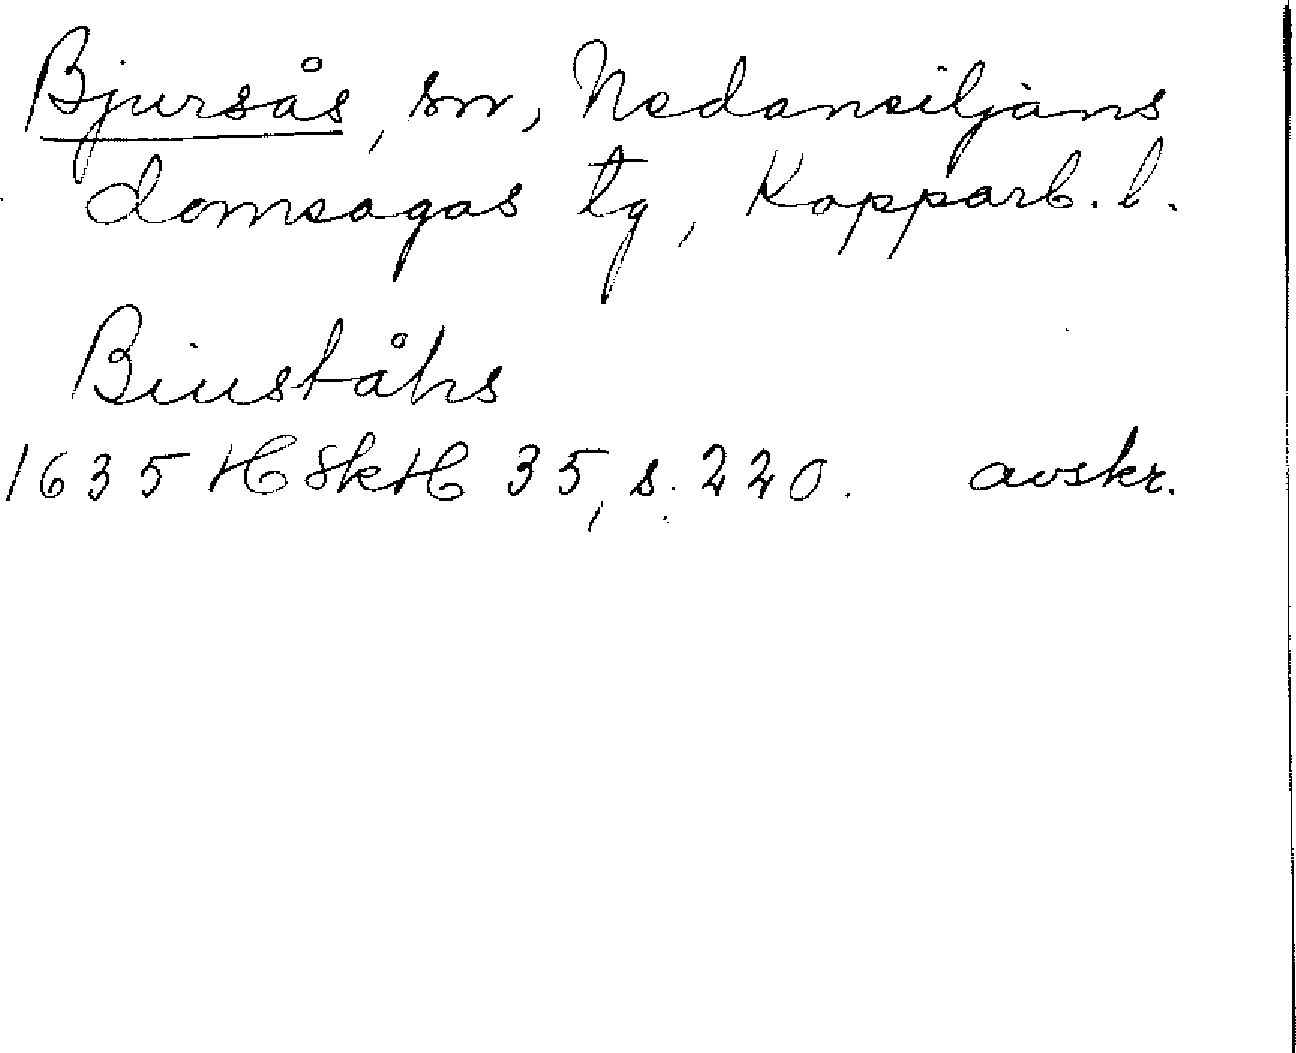 Bjursås, sn, Nedansiljans
domsagas tg, Kopparb. l.
Biuståhs
1635 HSkH 35, s. 220. avskr.